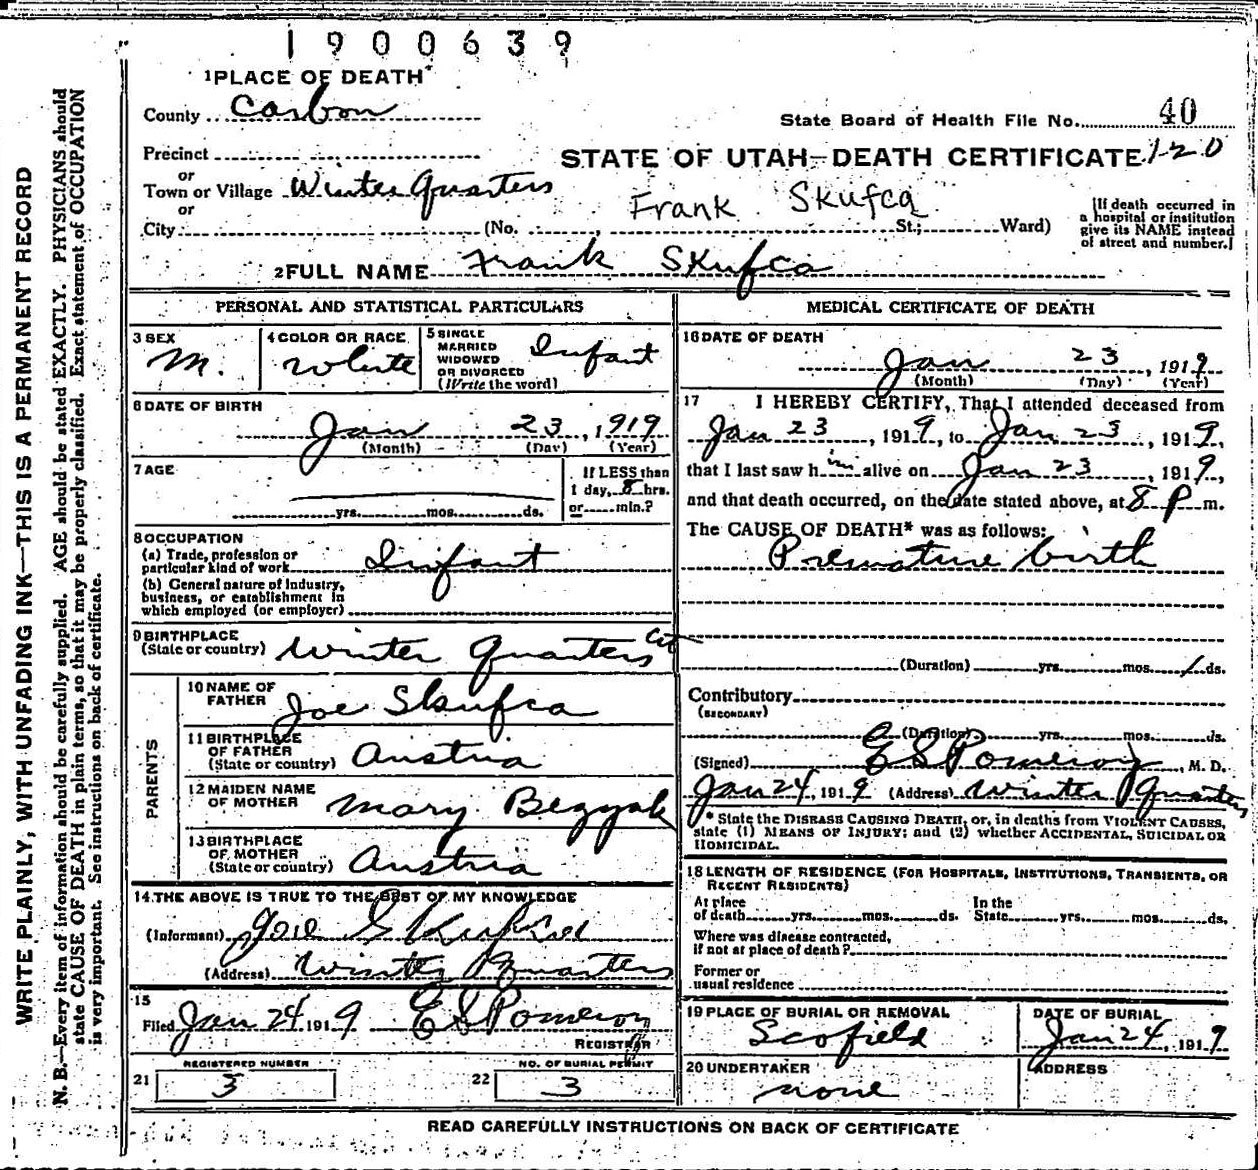 1900639
1 PLACE OF DEATH
County Carbon
State Board of Health File No. 40
Precinct
STATE OF UTAH—DEATH CERTIFICATE 120
or
Town or Village Winter Quarters
or
Frank Skufca
City (No. St.; Ward)
[If death occurred in
a hospital or institution
give its NAME instead
of street and number.]
2 FULL NAME Frank Skufca
WRITE PLAINLY, WITH UNFADING INK—THIS IS A PERMANENT RECORD
N. B.—Every item of information should be carefully supplied. AGE should be stated EXACTLY. PHYSICIANS should
state CAUSE OF DEATH in plain terms, so that it may be properly classified. Exact statement of OCCUPATION
is very important. See instructions on back of certificate.
PERSONAL AND STATISTICAL PARTICULARS
3 SEX
M.
4 COLOR OR RACE
White
5 SINGLE
MARRIED
WIDOWED
OR DIVORCED
(Write the word)
Infant
6 DATE OF BIRTH
Jan 23, 1919
(Month) (Day) (Year)
7 AGE
yrs. mos. ds.
If LESS than
1 day, 8 hrs.
or min.?
8 OCCUPATION
(a) Trade, profession or
particular kind of work Infant
(b) General nature of industry,
business, or establishment in
which employed (or employer)
9 BIRTHPLACE
(State or country) Winter Quarters
PARENTS
10 NAME OF
FATHER Joe Skufca
11 BIRTHPLACE
OF FATHER
(State or country) Austria
12 MAIDEN NAME
OF MOTHER Mary Bezyak
13 BIRTHPLACE
OF MOTHER
(State or country) Austria
14 THE ABOVE IS TRUE TO THE BEST OF MY KNOWLEDGE
(Informant) Joe Skufca
(Address) Winter Quarters
15
Filed Jan 24 1919 E S Pomeroy
REGISTRAR
REGISTERED NUMBER
21 3
NO. OF BURIAL PERMIT
22 3
MEDICAL CERTIFICATE OF DEATH
16 DATE OF DEATH
Jan 23, 1919
(Month) (Day) (Year)
17 I HEREBY CERTIFY, That I attended deceased from
Jan 23, 1919, to Jan 23, 1919,
that I last saw him alive on Jan 23, 1919,
and that death occurred, on the date stated above, at 8 P m.
The CAUSE OF DEATH* was as follows:
Premature birth
(Duration) yrs. mos. 1 ds.
Contributory
(SECONDARY)
(Duration) yrs. mos. ds.
(Signed) E S Pomeroy, M. D.
Jan 24, 1919 (Address) Winter Quarters
* State the DISEASE CAUSING DEATH, or, in deaths from VIOLENT CAUSES,
state (1) MEANS OF INJURY; and (2) whether ACCIDENTAL, SUICIDAL OR
HOMICIDAL.
18 LENGTH OF RESIDENCE (FOR HOSPITALS, INSTITUTIONS, TRANSIENTS, OR
RECENT RESIDENTS)
At place In the
of death yrs. mos. ds. State yrs. mos. ds.
Where was disease contracted,
if not at place of death?
Former or
usual residence
19 PLACE OF BURIAL OR REMOVAL
Scofield
DATE OF BURIAL
Jan 24, 1919
20 UNDERTAKER
none
ADDRESS
READ CAREFULLY INSTRUCTIONS ON BACK OF CERTIFICATE